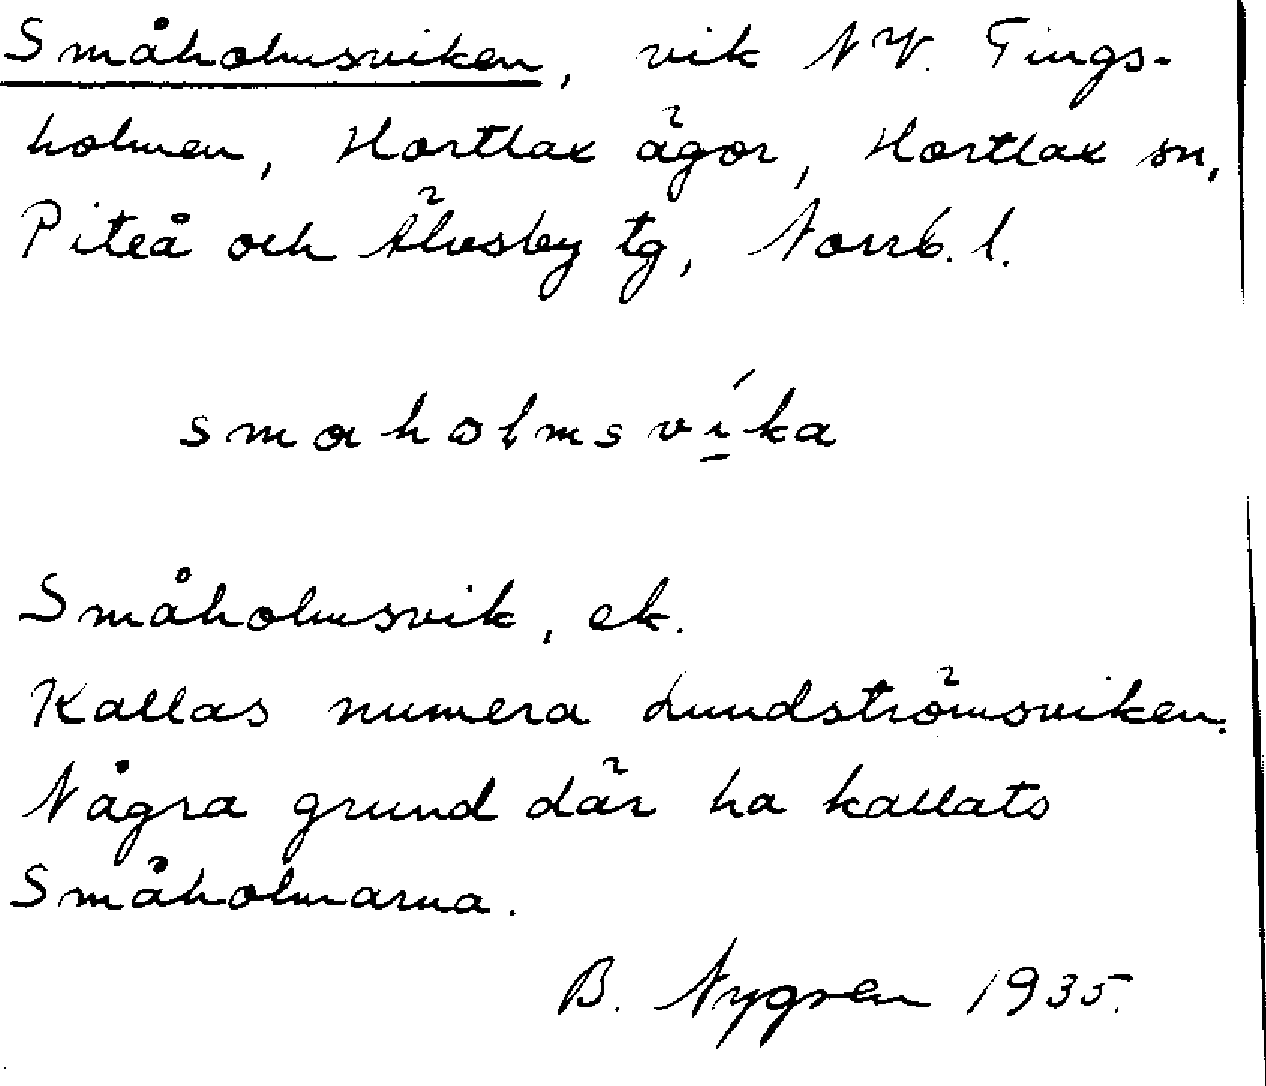 Småholmsviken, vik NV. Tings-
holmen, Hortlax ägor, Hortlax sn,
Piteå och Älvsby tg, Norrb. l.
smaholmsví̱ka
Småholmsvik, ek.
Kallas numera Lundströmsviken.
Några grund där ha kallats
Småholmarna.
B. Nygren 1935.